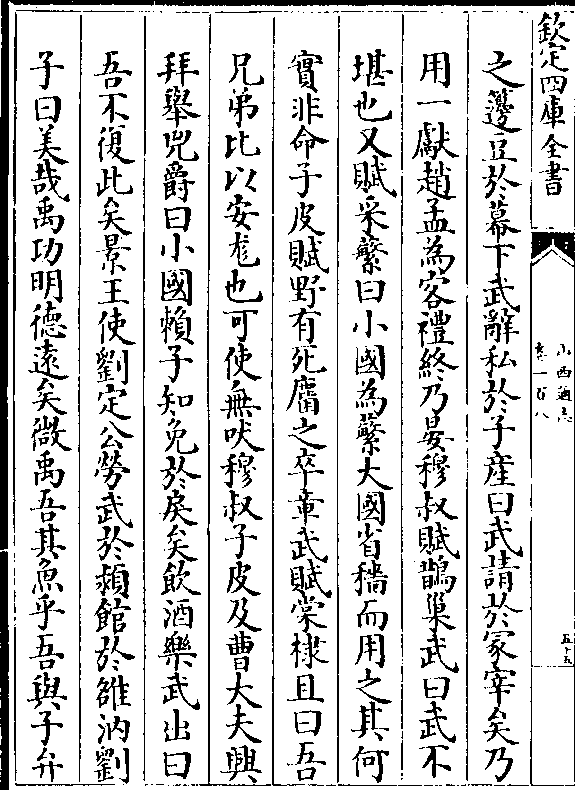 欽定四庫全書
山西通志
卷一百八
五十五
之籩豆於幕下武辭私於子產曰武請於冢宰矣乃
用一獻趙孟為客禮終乃晏穆叔賦鵲巢武曰武不
堪也又賦采蘩曰小國為蘩大國省穡而用之其何
實非命子皮賦野有死麕之卒章武賦棠棣且曰吾
兄弟比以安尨也可使無吠穆叔子皮及曹大夫興
拜舉兕爵曰小國賴子知免於戾矣飲酒樂武出曰
吾不復此矣景王使劉定公勞武於潁館於雒汭劉
子曰美哉禹功明德遠矣微禹吾其魚乎吾與子弁